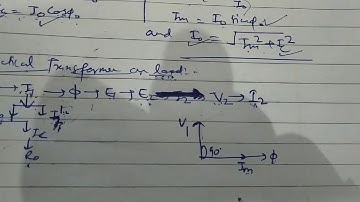 = I₀ Cosϕ₀ Iₘ = I₀ Sinϕ₀
and I₀ = √Iₘ² + I꜀²
Transformer on load:-
→ I₁ → ϕ → E₁ → E₂ → V₂ → I₂
V₁
I꜀
R₀
90°
Iₘ → ϕ